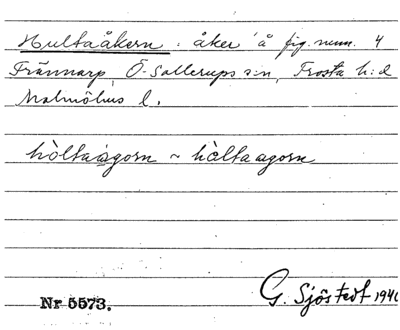 Hultaåkern : åker å fig. num. 4
Frännarp, Ö. Sallerups s:n, Frosta h:d
Malmöhus l.
hòltaagorn ~ hòltaagorn
Nr 5573.
G. Sjöstedt 1940